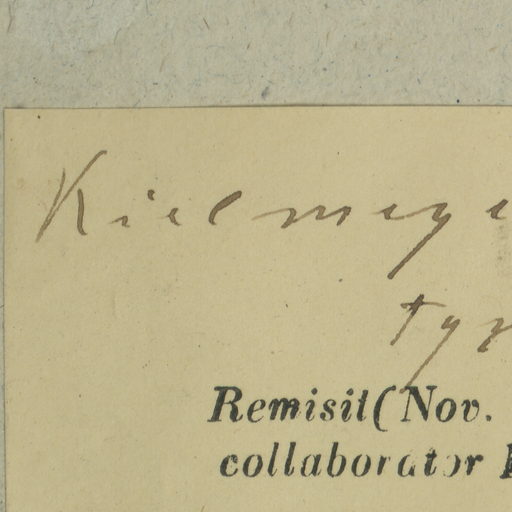 Kielmeye
typ
Remisit (Nov.
collaborator